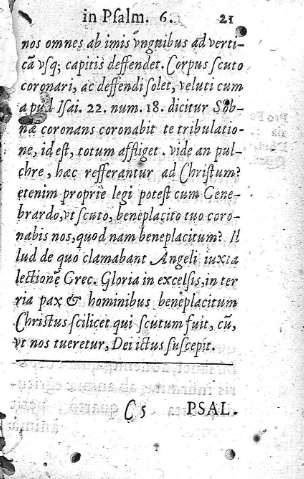 in Psalm. 6. 21
nos omnes ab imis vnguibus ad verti-
cã vsq; capitis deffendet. Corpus scuto
coronari, ac deffendi solet, veluti cum
apud Isai. 22. num. 18. dicitur Sob-
næ coronans coronabit te tribulatio-
ne, id est, totum affliget. vide an pul-
chre, hæc refferantur ad Christum?
etenim proprie legi potest cum Gene-
brardo, vt scuto, beneplacito tuo coro-
nabis nos, quod nam beneplacitum? Il
lud de quo clamabant Angeli iuxta
lectionẽ Grec. Gloria in excelsis, in ter
ria pax & hominibus beneplacitum
Christus scilicet qui scutum fuit, cũ,
vt nos tueretur, Dei ictus suscepit.
C 5 PSAL.